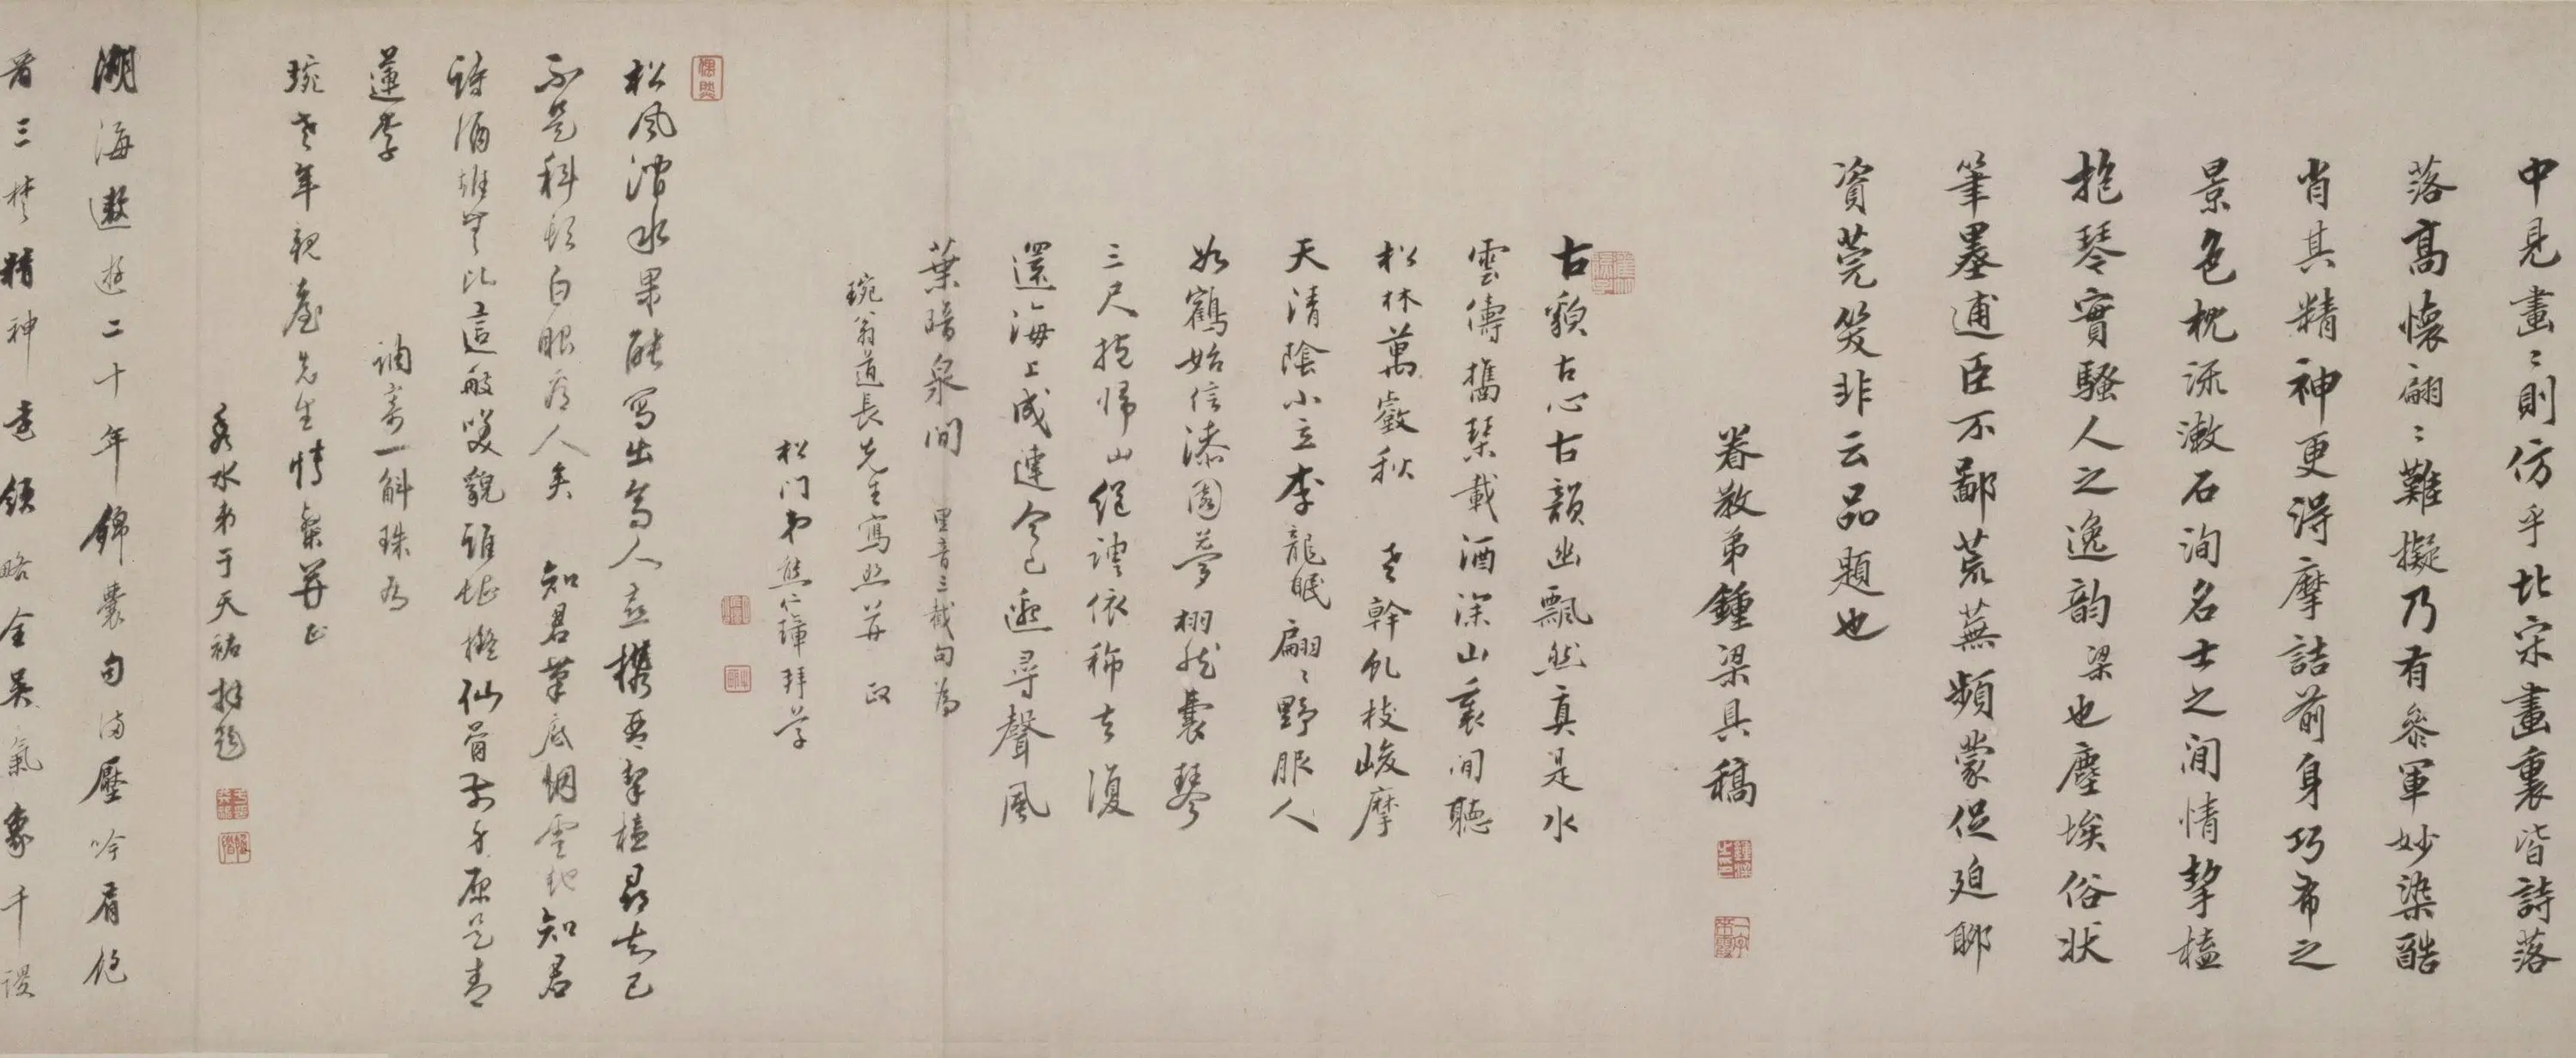 中見畫〻則仿乎北宋畫裏皆詩落
落高懷翩〻難擬乃有參軍妙染酷
肖其精神更得摩詰前身巧布之
景色枕流漱石洵名士之閒情挈榼
抱琴實騷人之逸韵梁也塵埃俗狀
筆墨逋臣不鄙荒蕪頻蒙促迫聊
資莞笑非云品題也
眷教弟鍾梁具稿
古貌古心古韻幽飄然真是水
雲儔攜琴載酒深山裏閒聽
松林萬壑秋 老幹虬枝峻摩
天清陰小立李龍眠翩〻野服人
如鶴始信漆園夢栩然囊琴
三尺抱歸山絕調依稀去復
還海上成連今已邈尋聲風
葉暗泉間 里言三截句為
琬翁道長先生寫照並政
松門弟熊仁璋拜草
松風澗水果能寫出高人意攜琴挈榼尋知己
不是科頭白眼看人矣 知君筆底烟雲地知君
詩酒誰堪比這般笑貌誰堪擬仙骨 原是青
蓮李
調寄一斛珠為
琬老年親臺先生情粲並正
秀水弟于天祐拜題
湖海遨遊二十年錦囊句滿壓吟肩饒
看三楚精神老領略全吳氣象千謖